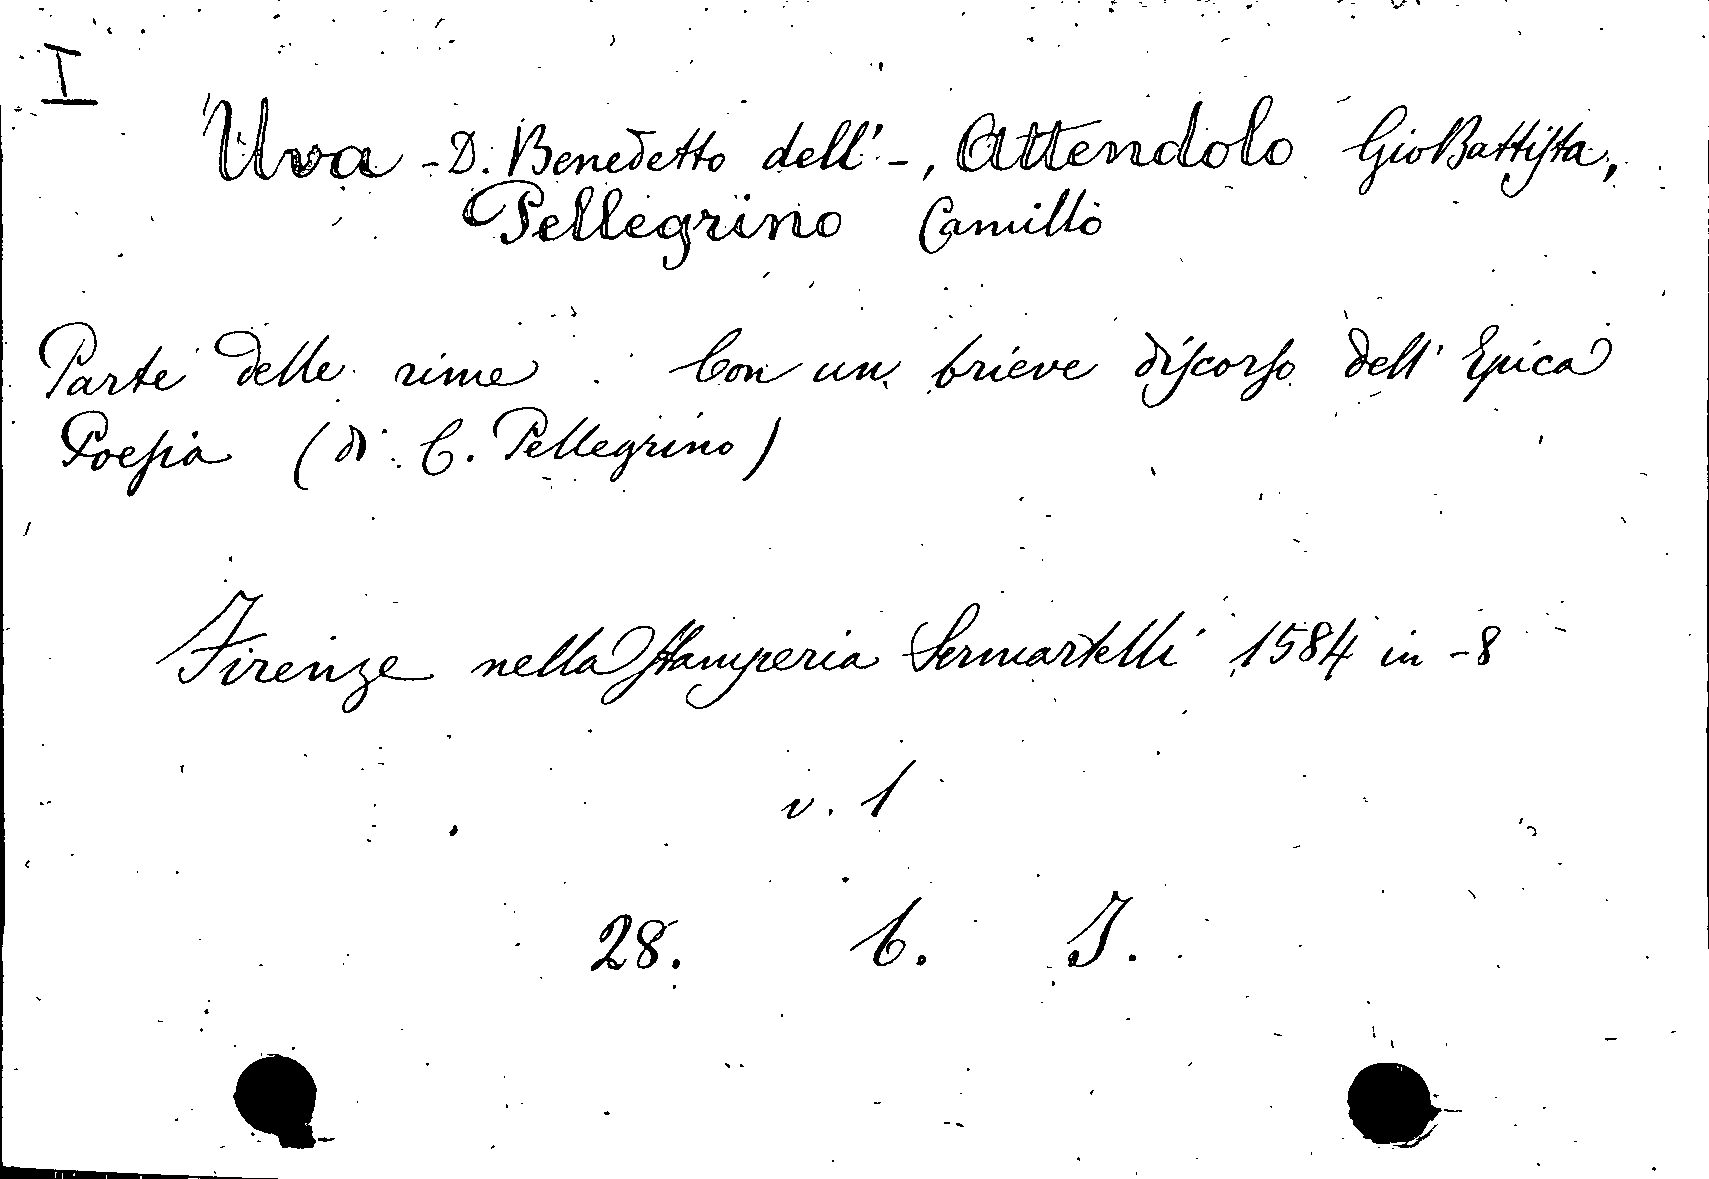 I
Uva - D. Benedetto dell' -, Attendolo GioBattista,
Pellegrino Camillo
Parte delle rime. Con un brieve discorso dell' Epica
Poesia (di C. Pellegrino)
Firenze nella stamperia Sermartelli 1584 in -8
v. 1
28. 6. I.